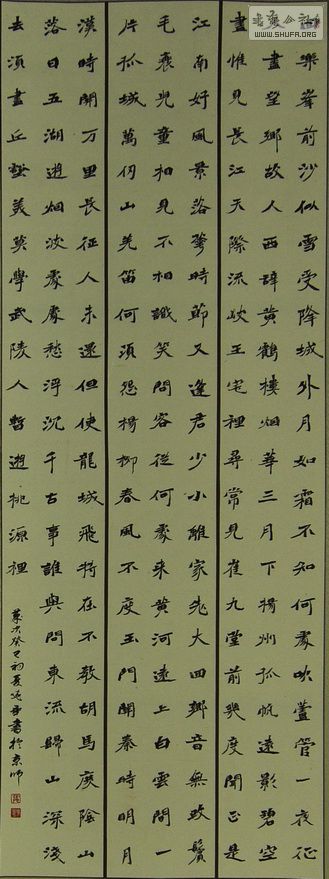 樂峯前沙似雪受降城外月如霜不知何處吹蘆管一夜征
盡望鄉故人西辭黃鶴樓烟華三月下揚州孤帆遠影碧空
盡惟見長江天際流岐王宅裡尋常見崔九堂前幾度聞正是
江南好風景落花時節又逢君少小離家老大回鄉音無改鬢
毛衰兒童相見不相識笑問客從何處來黃河遠上白雲間一
片孤城萬仞山羌笛何須怨楊柳春風不度玉門關秦時明月
漢時關万里長征人未還但使龍城飛將在不教胡馬度陰山
落日五湖遊烟波處處愁浮沉千古事誰與問東流歸山深淺
去須盡丘壑美莫學武陵人暫遊桃源裡
歲次癸巳初夏書於京師
WWW.SHUFA.ORG